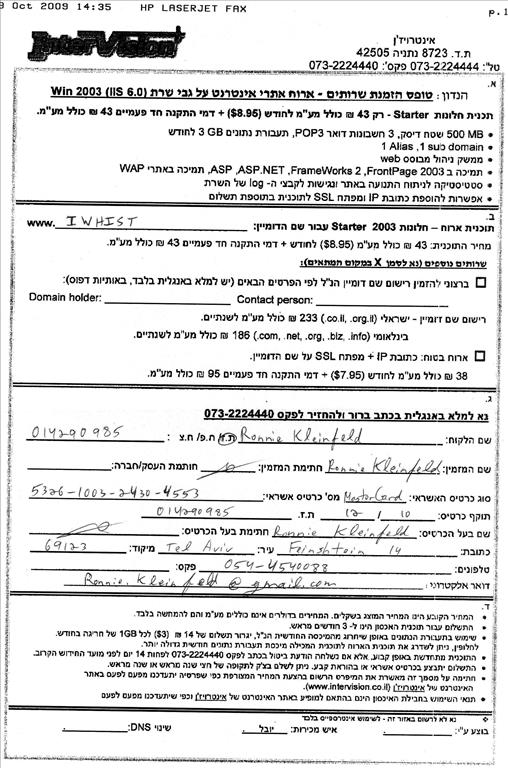 8 Oct 2009 14:35 HP LASERJET FAX p.1
InterVision
אינטרויז'ן
ת.ד. 8723 נתניה 42505
טל': 073-2224444 פקס: 073-2224440
א.
הנדון: טופס הזמנת שרותים - ארוח אתרי אינטרנט על גבי שרת Win 2003 (IIS 6.0)
תכנית חלונות Starter - רק 43 ₪ כולל מע"מ לחודש ($8.95) + דמי התקנה חד פעמיים 43 ₪ כולל מע"מ.
• 500 MB שטח דיסק, 3 חשבונות דואר POP3, תעבורת נתונים 3 GB לחודש
• 1 Alias, 1 sub domain
• ממשק ניהול מבוסס web
• תמיכה ב FrontPage 2003, FrameWorks 2, ASP.NET, ASP, תמיכה באתרי WAP
• סטטיסטיקה לניתוח התנועה באתר ונגישות לקבצי ה- log של השרת
• אפשרות להוספת כתובת IP ומפתח SSL לתוכנית בתוספת תשלום
ב.
תוכנית ארוח - חלונות Starter 2003 עבור שם הדומיין: www. IWHIST
מחיר התוכנית: 43 ₪ כולל מע"מ ($8.95) לחודש + דמי התקנה חד פעמיים 43 ₪ כולל מע"מ.
שרותים נוספים (נא לסמן X במקום המתאים):
ברצוני להזמין רישום שם דומיין הנ"ל לפי הפרטים הבאים (יש למלא באנגלית בלבד, באותיות דפוס):
Domain holder: Contact person:
רישום שם דומיין - ישראלי (co.il, .org.il.) 233 ₪ כולל מע"מ לשנתיים.
בינלאומי (com, .net, .org, .biz, .info.) 186 ₪ כולל מע"מ לשנתיים.
ארוח בטוח: כתובת IP + מפתח SSL על שם הדומיין.
38 ₪ כולל מע"מ לחודש ($7.95) + דמי התקנה חד פעמיים 95 ₪ כולל מע"מ.
ג.
נא למלא באנגלית בכתב ברור ולהחזיר לפקס 073-2224440
שם הלקוח: Ronnie Kleinfeld ת.ז/ ח.פ/ ח.צ : 014290985
שם המזמין: Ronnie Kleinfeld חתימת המזמין: חותמת העסק/חברה:
סוג כרטיס האשראי: MasterCard מס' כרטיס אשראי: 5326-1003-2430-4553
תוקף כרטיס: 10 / 12 ת.ז. 014290985
שם בעל הכרטיס: Ronnie Kleinfeld חתימת בעל הכרטיס:
כתובת: Feinshtein 14 עיר: Tel Aviv מיקוד: 69123
טלפונים: 054-4540088 פקס:
דואר אלקטרוני: Ronnie.Kleinfeld@gmail.com
ד.
• המחיר הקובע הינו המחיר המוצג בשקלים. המחירים בדולרים אינם כוללים מע"מ והם להמחשה בלבד.
• התשלום עבור תוכנית האכסון הינו ל- 3 חודשים מראש.
• שימוש בתעבורת הנתונים באופן שיחרוג מהמיכסה החודשית הנ"ל, יגרור תשלום של 14 ₪ ($3) לכל 1GB של חריגה בחודש.
לחלופין, ניתן לשדרג את תוכנית הארוח לתוכנית המכילה מיכסת תעבורת נתונים חודשית גדולה יותר.
• התוכנית מתחדשת באופן קבוע, אלא אם נשלחה הודעת ביטול בכתב לפקס 073-2224440 לפחות 14 יום לפני מועד החידוש הקרוב.
• התשלום יתבצע בכרטיס אשראי או בהוראת קבע. ניתן לשלם בצ'ק לתקופה של חצי שנה מראש או שנה מראש.
• חתימה על מסמך זה מאשרת את המיפרט הרשום בהצעת המחיר המצורפת כפי שפרסיה יתעדכנו מפעם לפעם באתר
האינטרנט של אינטרויז'ן (www.intervision.co.il).
• תנאי השימוש בחבילת האיכסון הינם בהתאם למופיע באתר האינטרנט של אינטרויז'ן וכפי שיתעדכנו מפעם לפעם
נא לא לרשום באזור זה - לשימוש אינטרספייס בלבד
בוצע ע"י: איש מכירות: יובל שינוי DNS: